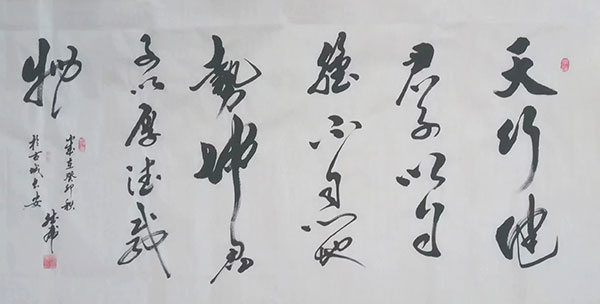 天行健
君子以自
強不息地
勢坤君
子以厚德載
物
歲在癸卯秋
於古城长安